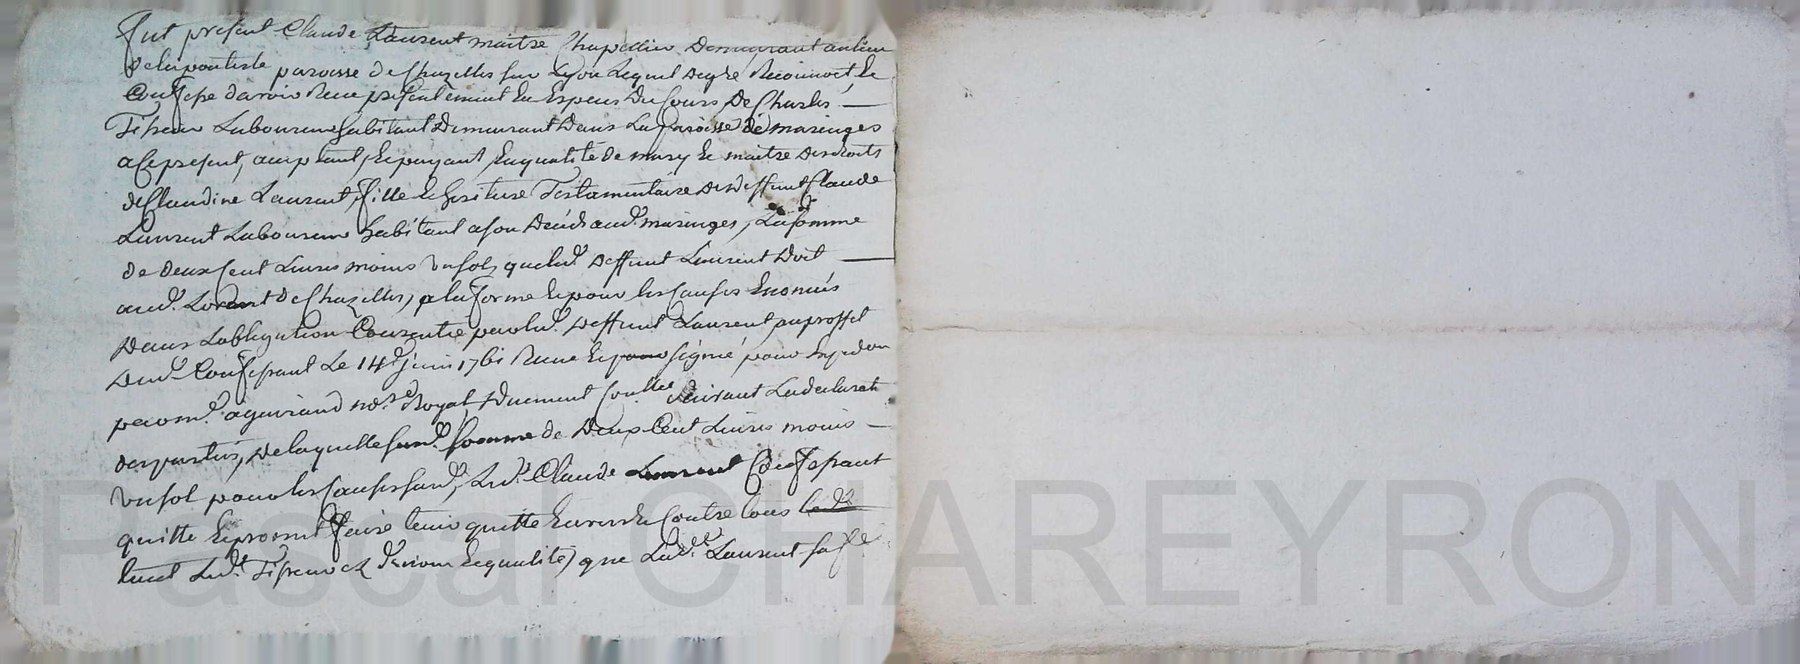 fut present Claude Laurent maitre Chapellier demeurant au lieu
de la pontiere paroisse de Chazelles sur Lyon Lequel de gré Reconnoit et
Confesse davoir Receu presentement En Especes du Cours De Charles
Laboureur habitant Demeurant Dans La paroisse de maringes
a Ce present, acceptant, et payant, En qualité de mary et maitre des droits
de Claudine Laurent, fille et heritiere Testamentaire de deffunt Claude
Laurent Laboureur habitant a son Deceds aud. maringes, La somme
de deux Cent Livres moins un sol, que led. deffunt Laurent Doit
aud. Lorent de Chazelles, a la forme et pour les Causes Enoncés
Dans Lobligation Consentie par led. deffunt Laurent, au proffit
dud. Confessant Le 14e juin 1761 Receue et signé, pour Expedon
par me. aguiraud no.re Royal duement Conllee suivant La declarati
des parties, De laquelle susd. somme de Deux Cent Livres moins
un sol pour les Causes susd., Led. Claude Laurent Confessant
quitte et promet faire tenir quitte Envers et Contre tous
tant Led. qualité) que Lad. Laurent sa fe
Pascal CHAREYRON